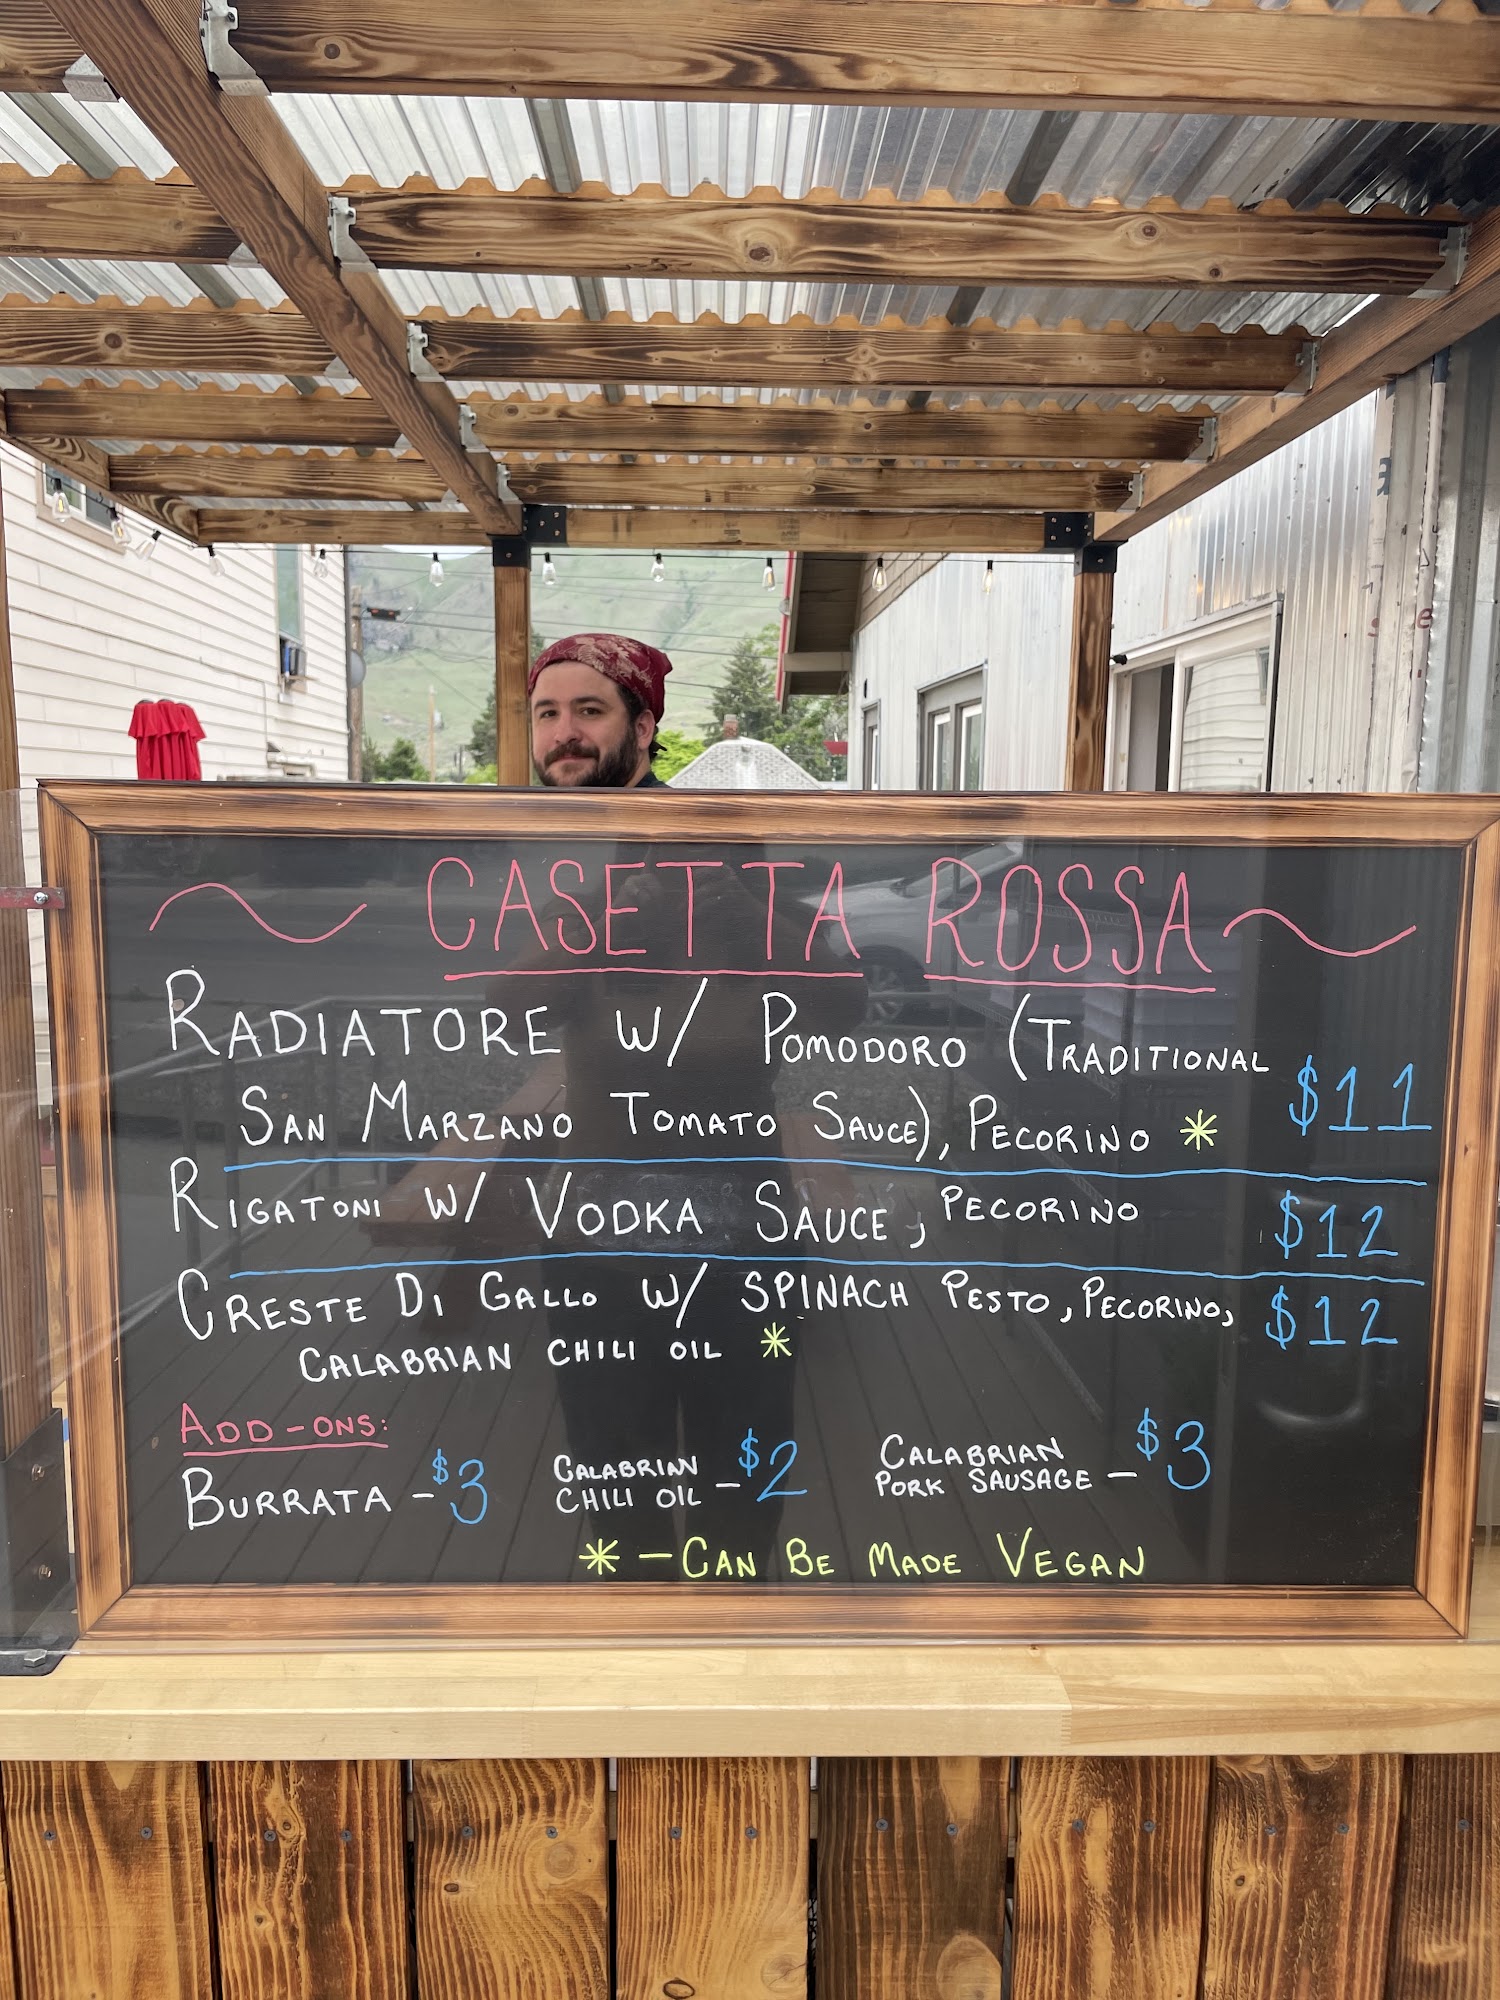 CASETTA ROSSA
RADIATORE W/ POMODORO (TRADITIONAL
SAN MARZANO TOMATO SAUCE), PECORINO * $11
RIGATONI W/ VODKA SAUCE, PECORINO $12
CRESTE DI GALLO W/ SPINACH PESTO, PECORINO, $12
CALABRIAN CHILI OIL *
ADD-ONS:
BURRATA - $3
CALABRIAN
CHILI OIL - $2
CALABRIAN
PORK SAUSAGE - $3
* - CAN BE MADE VEGAN